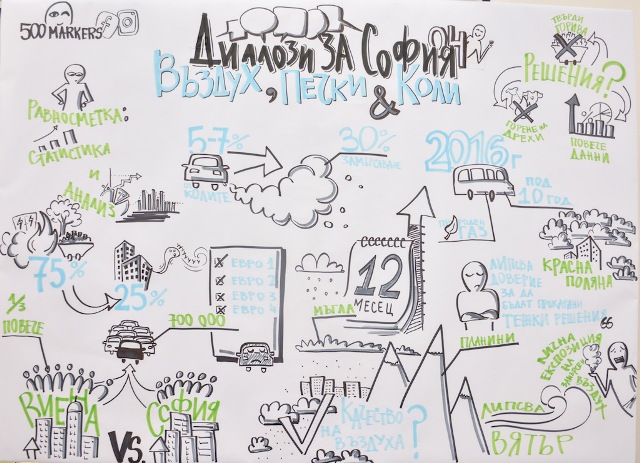 500 MARKERS
ДИАЛОЗИ ЗА СОФИЯ
ВЪЗДУХ, ПЕЧКИ
& КОЛИ
ТВЪРДИ
ГОРИВА
РЕШЕНИЯ?
ГОРЕНЕ НА
ДРЕХИ
ПОВЕЧЕ
ДАННИ
РАВНОСМЕТКА:
СТАТИСТИКА
И
АНАЛИЗ
5-7%
КОЛИТЕ
30%
ЗАМЪРСЯВАНЕ
2016г
ПОД
10 ГОД.
ГАЗ
75%
25%
ЕВРО 1
ЕВРО 2
ЕВРО 3
ЕВРО 4
700 000
12
МЕСЕЦ
МЪГЛА
ЛИПСВА
ДОВЕРИЕ
ЗА ДА
БЪДАТ ПРОКАРАНИ
ТЕЖКИ РЕШЕНИЯ
КРАСНА
ПОЛЯНА
1/3
ПОВЕЧЕ
ВИЕНА
VS.
СОФИЯ
ПЛАНИНИ
КАЧЕСТВО
НА
ВЪЗДУХА?
ЛИПСВА
ВЯТЪР
ЕКСПОЗИЦИЯ
НА
ВЪЗДУХ